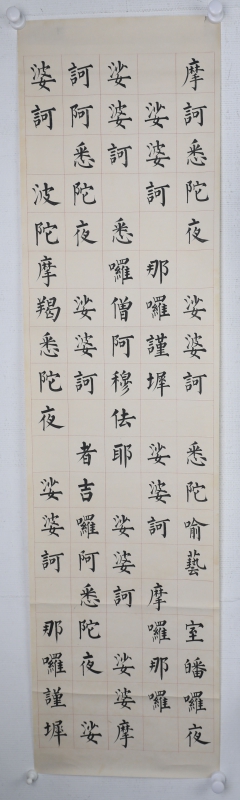 摩訶悉陀夜 娑婆訶 悉陀喻藝 室皤囉夜
娑婆訶 那囉謹墀 娑婆訶 摩囉那囉
娑婆訶 悉囉僧阿穆佉耶 娑婆訶 娑婆摩
訶阿悉陀夜 娑婆訶 者吉囉阿悉陀夜 娑
婆訶 波陀摩羯悉陀夜 娑婆訶 那囉謹墀